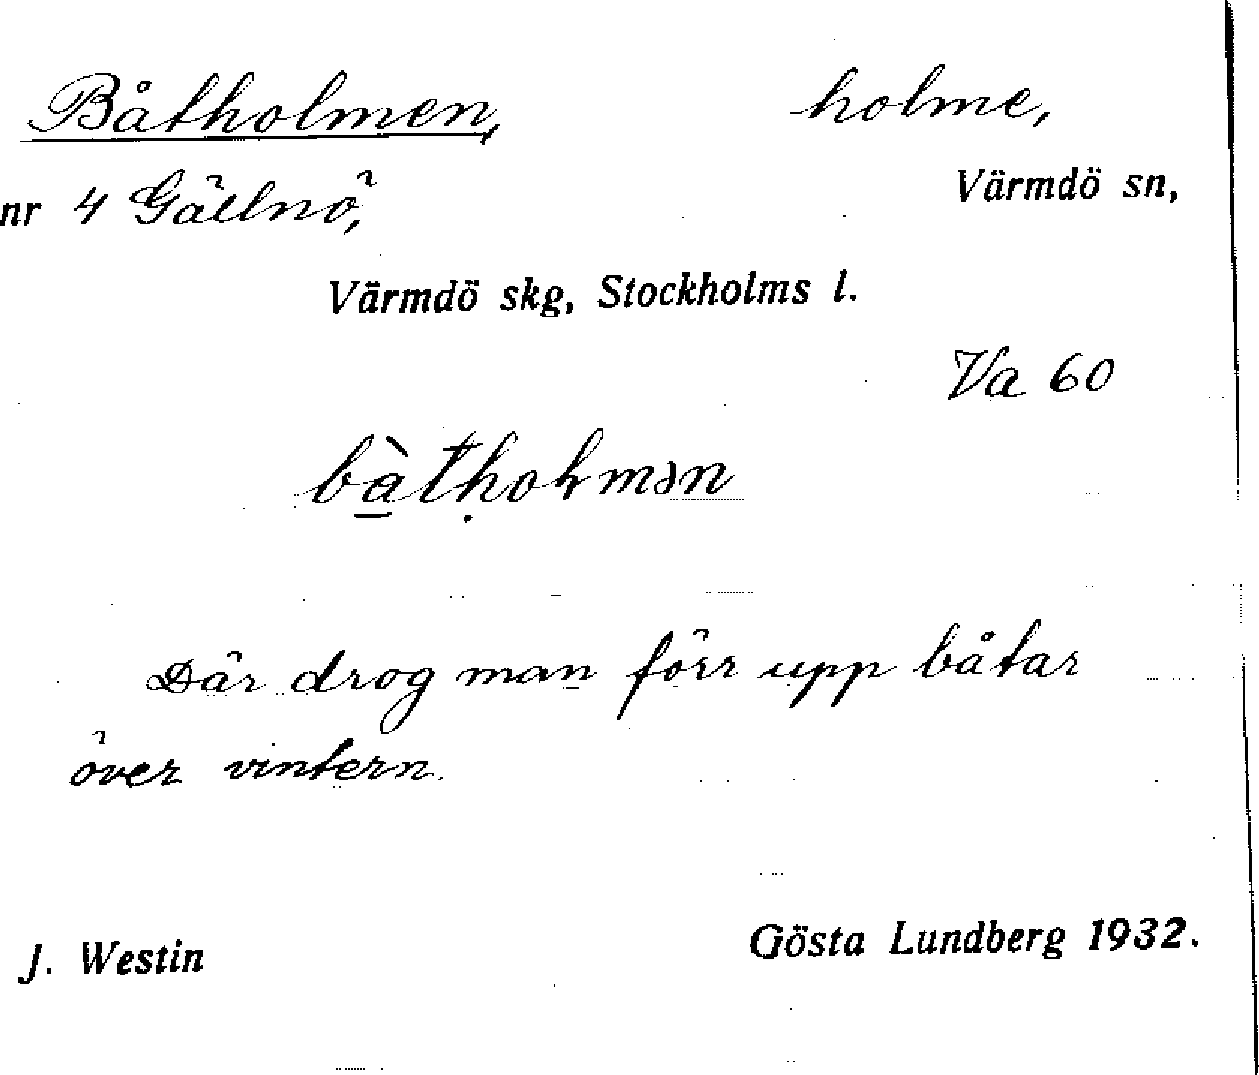 Båtholmen, holme,
nr 4 Gällnö, Värmdö sn,
Värmdö skg, Stockholms l.
Va 60
bàt̩hoɫmən
Där drog man förr upp båtar
över vintern.
J. Westin Gösta Lundberg 1932.